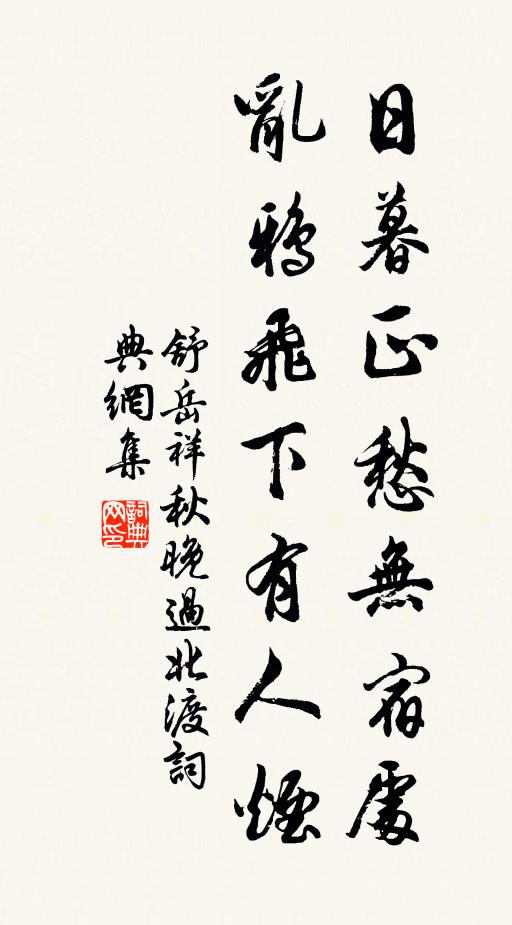 日暮正愁無宿處
亂鴉飛下有人煙
舒岳祥秋晚過北渡詞
典網集
詞典
网印